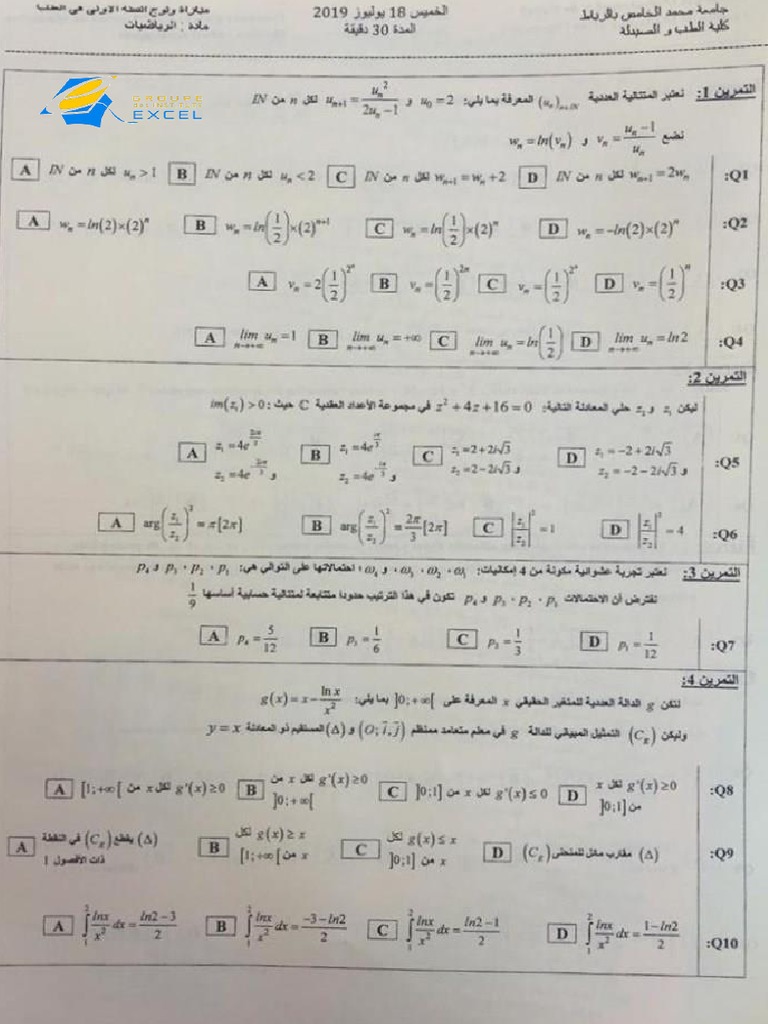 جامعة محمد الخامس بالرباط
كلية الطب و الصيدلة
الخميس 18 يوليوز 2019
المدة 30 دقيقة
مباراة ولوج السنة الأولى في الطب
مادة : الرياضيات
GROUPE
EXCEL
التمرين 1: نعتبر المتتالية العددية (u_n)_{n∈IN} المعرفة بما يلي: u_0 = 2 و u_{n+1} = u_n^2/(2u_n −1) لكل n من IN
نضع v_n = (u_n −1)/u_n و w_n = ln(v_n)
Q1: D w_{n+1} = 2w_n لكل n من IN C w_{n+1} = w_n + 2 لكل n من IN B u_n < 2 لكل n من IN A u_n > 1 لكل n من IN
Q2: D w_n = −ln(2)×(2)^n C w_n = ln(1/2)×(2)^n B w_n = ln(1/2)×(2)^{n+1} A w_n = ln(2)×(2)^n
Q3: D v_n = (1/2)^n C v_n = (1/2)^{2^n} B v_n = (1/2)^{2n} A v_n = 2(1/2)^{2^n}
Q4: D lim_{n→+∞} u_n = ln2 C lim_{n→+∞} u_n = ln(1/2) B lim_{n→+∞} u_n = +∞ A lim_{n→+∞} u_n = 1
التمرين 2:
ليكن z_1 و z_2 حلي المعادلة التالية: z^2 + 4z + 16 = 0 في مجموعة الأعداد العقدية C حيث : im(z_1) > 0
Q5: D z_1 = −2 + 2i√3 و z_2 = −2 − 2i√3 C z_1 = 2 + 2i√3 و z_2 = 2 − 2i√3 B z_1 = 4e^{iπ/3} و z_2 = 4e^{−iπ/3} A z_1 = 4e^{2iπ/3} و z_2 = 4e^{−2iπ/3}
Q6: D |z_1/z_2|^3 = 4 C |z_1/z_2|^3 = 1 B arg(z_1/z_2)^2 ≡ 2π/3 [2π] A arg(z_1/z_2)^3 ≡ π[2π]
التمرين 3: نعتبر تجربة عشوائية مكونة من 4 إمكانيات: ω_1 ، ω_2 ، ω_3 ، و ω_4 ، احتمالاتها على التوالي هي: p_1 ، p_2 ، p_3 و p_4
نفترض أن الاحتمالات p_1 ، p_2 ، p_3 و p_4 تكون في هذا الترتيب حدودا متتابعة لمتتالية حسابية أساسها 1/9
Q7: D p_1 = 1/12 C p_2 = 1/3 B p_3 = 1/6 A p_4 = 5/12
التمرين 4:
لتكن g الدالة العددية للمتغير الحقيقي x المعرفة على ]0;+∞[ بما يلي: g(x) = x − ln x/x^2
وليكن (C_g) التمثيل المبياني للدالة g في معلم متعامد ممنظم (O;i,j) و (Δ) المستقيم ذو المعادلة y = x
Q8: D g'(x) ≥ 0 لكل x من ]0;1] C g'(x) ≤ 0 لكل x من ]0;1] B g'(x) ≥ 0 لكل x من ]0;+∞[ A g'(x) ≥ 0 لكل x من [1;+∞[
Q9: D (Δ) مقارب مائل للمنحنى (C_g) C g(x) ≤ x لكل x من ]0;1] B g(x) ≥ x لكل x من [1;+∞[ A (Δ) يقطع (C_g) في النقطة ذات الأفصول 1
Q10: D ∫_1^2 lnx/x^2 dx = (1−ln2)/2 C ∫_1^2 lnx/x^2 dx = (ln2−1)/2 B ∫_1^2 lnx/x^2 dx = (−3−ln2)/2 A ∫_1^2 lnx/x^2 dx = (ln2−3)/2